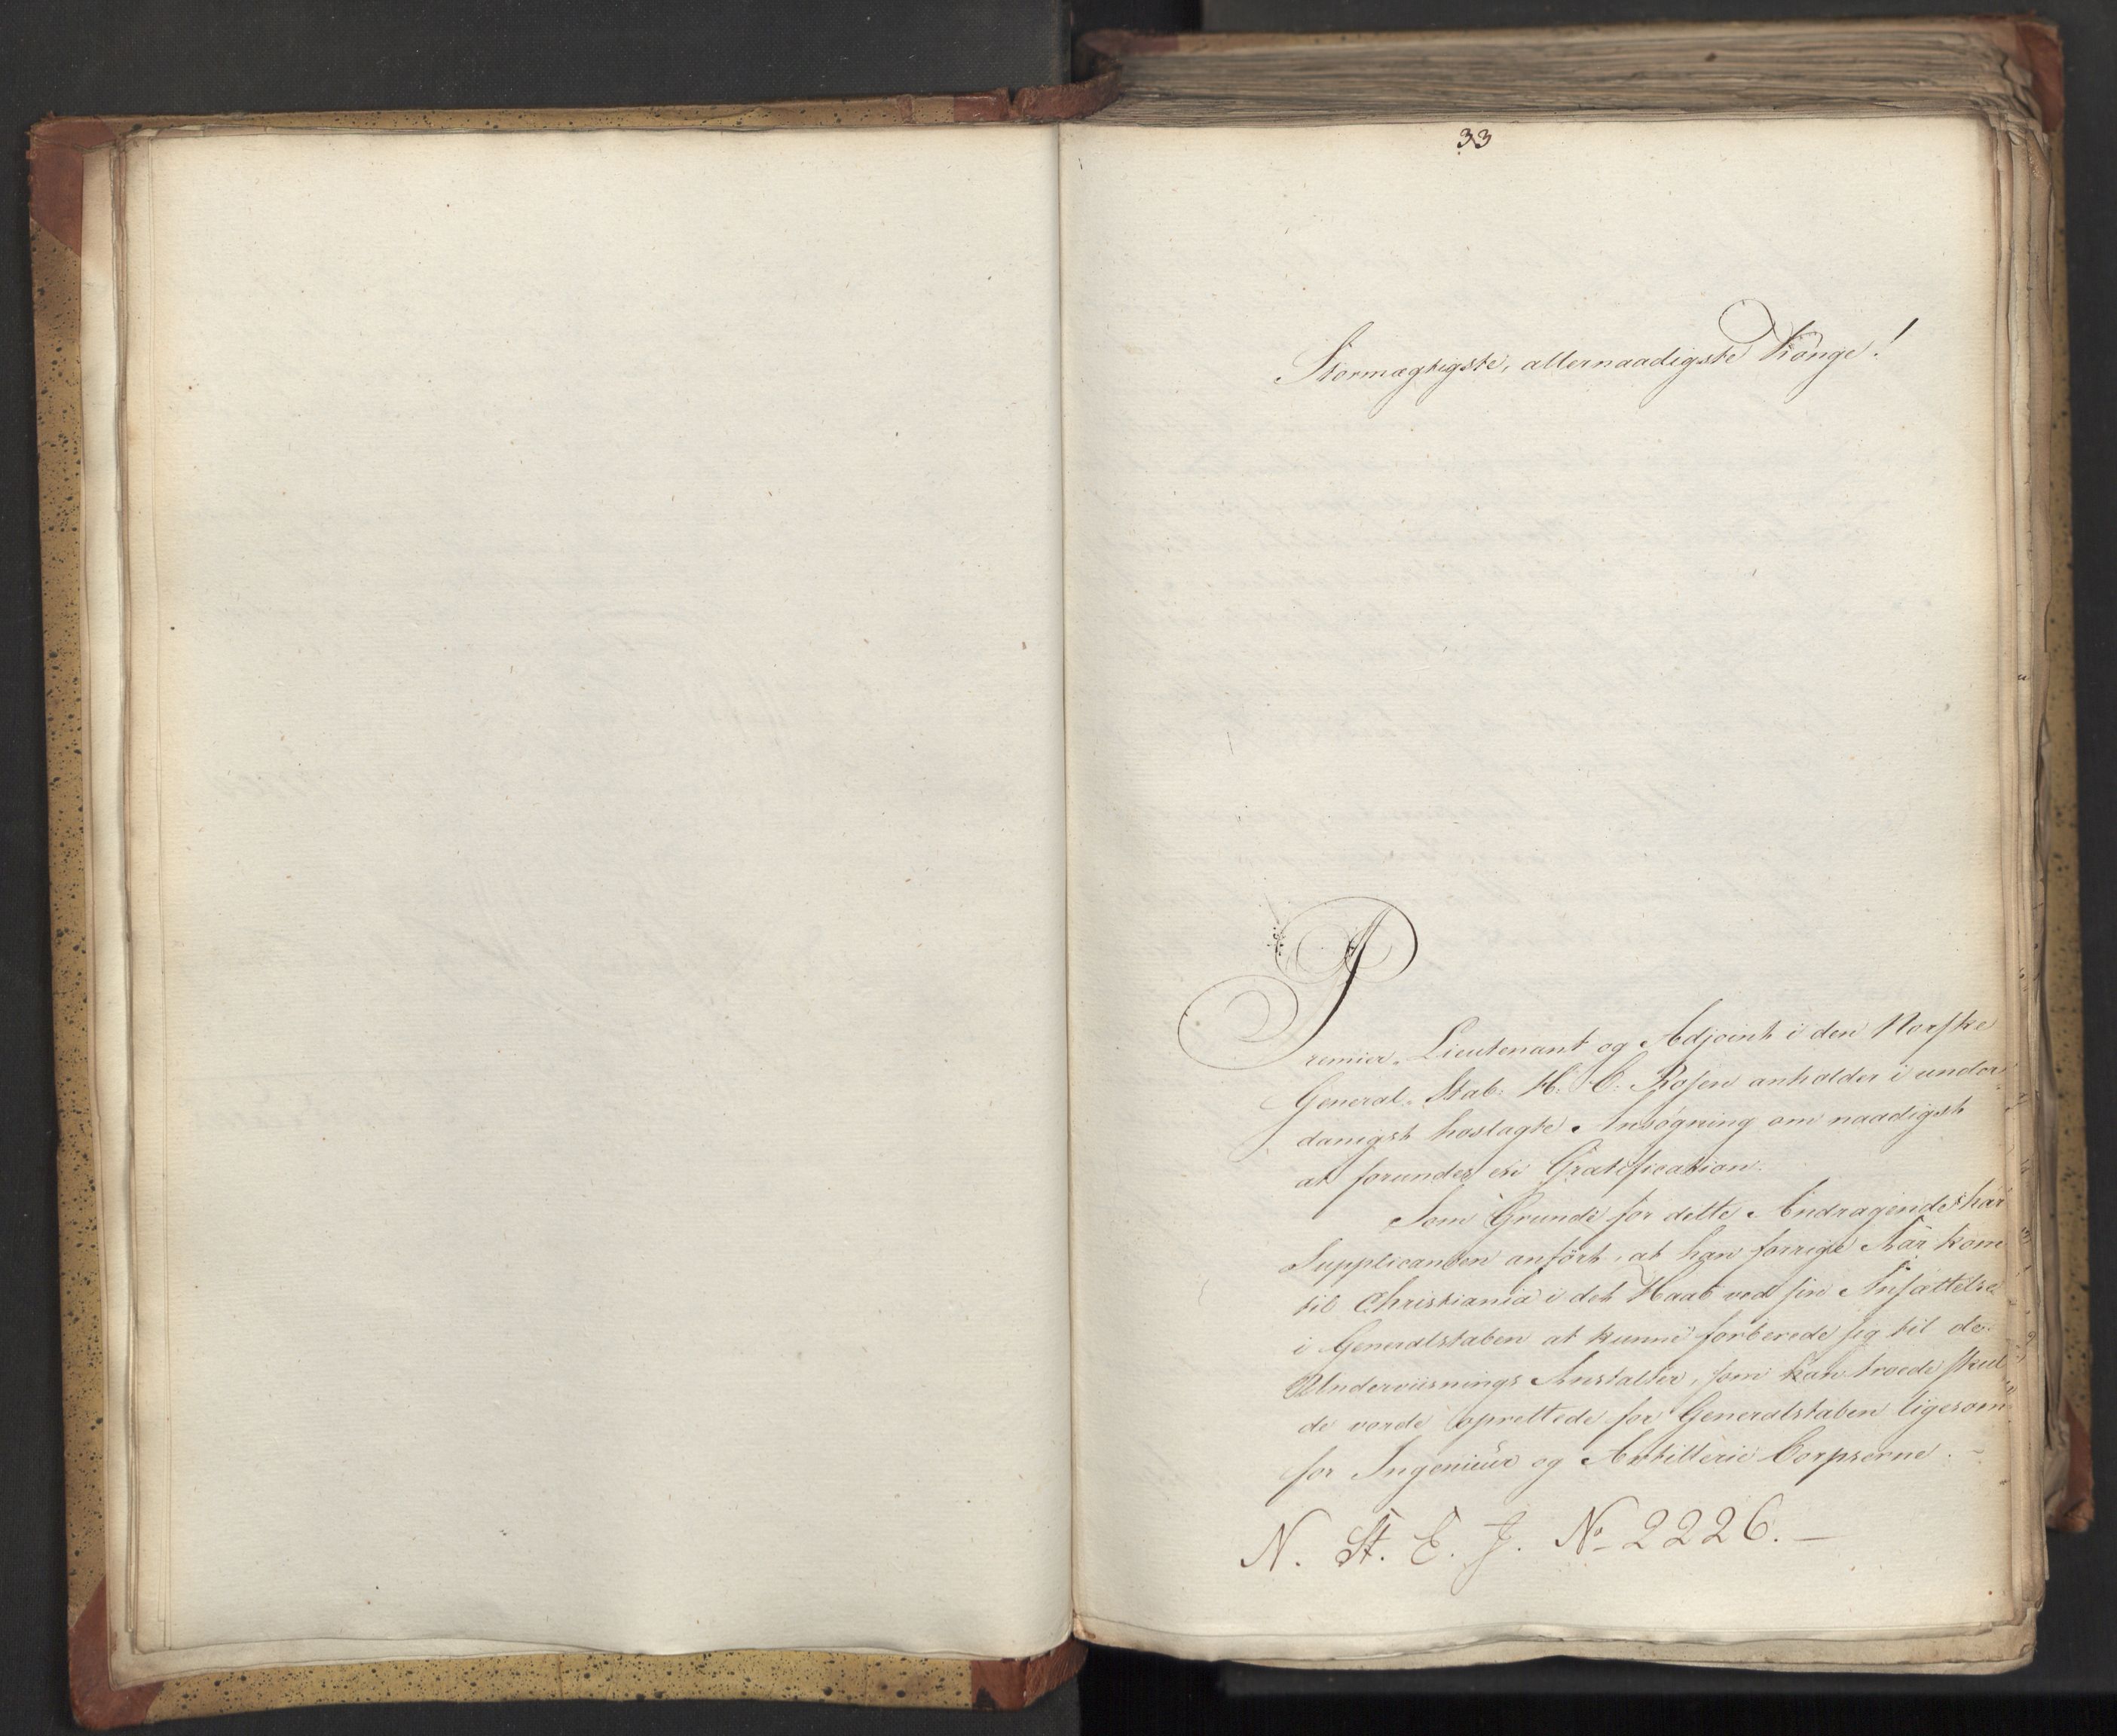 33
Stormægtigste, allernaadigste Konge!
Premier-Lieutenant og Adjoint i den Norske
General-Stab H. C. Rosen anholder i under-
danigst hoslagte Ansøgning om naadigst
at forundes en Gratification.
Som Grunde for dette Andragende har
Supplicanten anført, at han forrige Aar kom
til Christiania i det Haab ved sin Ansættelse
i Generalstaben at kunne forberede sig til de
Underviisnings Anstalter, som han troede skul-
de vorde oprettede for Generalstaben ligesom
for Ingenieur og Artillerie Corpserne.-
N. St. E. J. No 2226.-